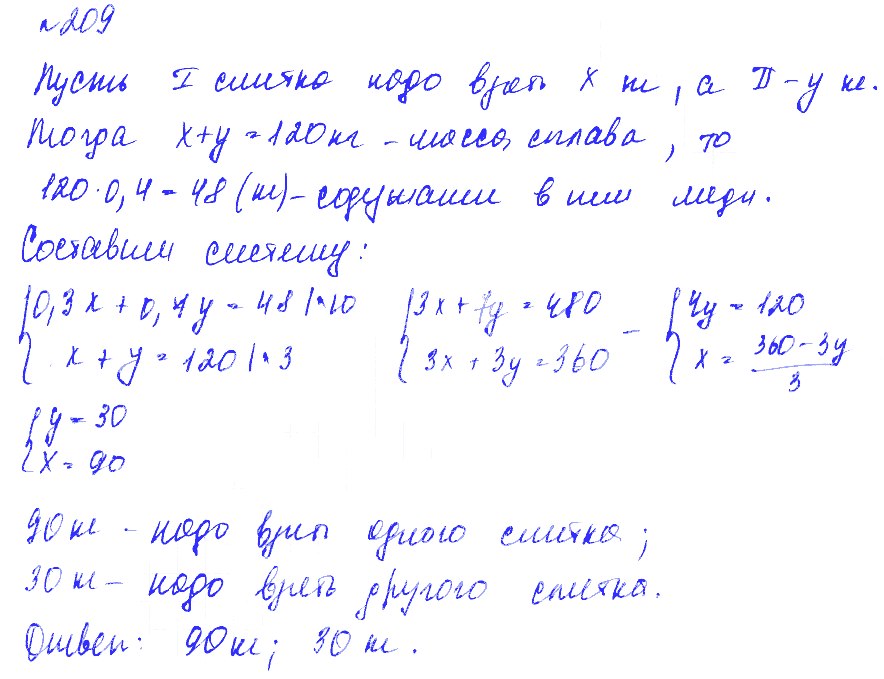 №209
Пусть I слитка надо взять x кг, а II – y кг.
Тогда x+y=120кг – масса сплава, то
120·0,4=48 (кг) – содержание в нём меди.
Составим систему:
{0,3x+0,7y=48 |·10 {3x+7y=480 – {4y=120
{x+y=120 |·3 {3x+3y=360 {x=\frac{360-3y}{3}
{y=30
{x=90
90кг – надо взять одного слитка;
30кг – надо взять другого слитка.
Ответ: 90кг; 30кг.